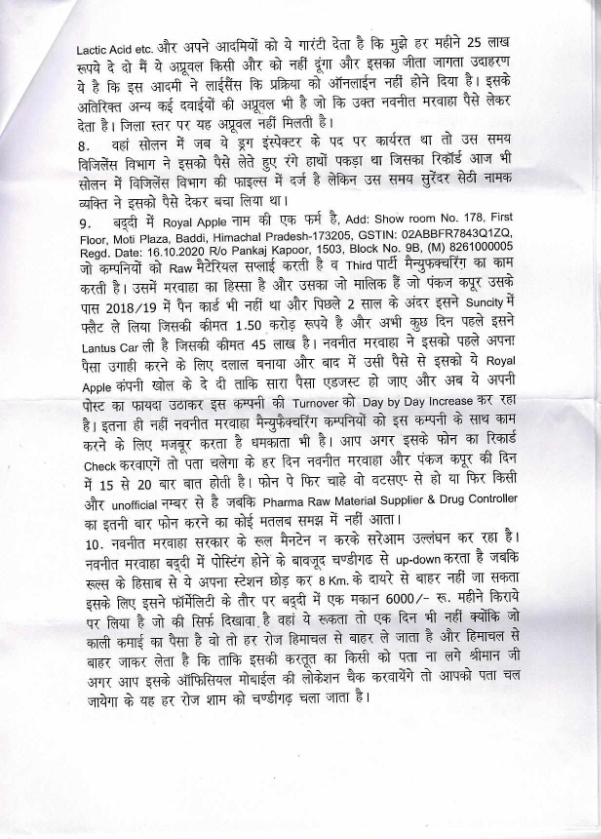 Lactic Acid etc. और अपने आदमियों को ये गारंटी देता है कि मुझे हर महीने 25 लाख
रूपये दे दो मैं ये अप्रूवल किसी और को नहीं दूंगा और इसका जीता जागता उदाहरण
ये है कि इस आदमी ने लाईसैंस कि प्रक्रिया को ऑनलाईन नहीं होने दिया है। इसके
अतिरिक्त अन्य कई दवाईयों की अप्रूवल भी है जो कि उक्त नवनीत मरवाहा पैसे लेकर
देता है। जिला स्तर पर यह अप्रूवल नहीं मिलती है।
8. वहां सोलन में जब ये ड्रग इंस्पेक्टर के पद पर कार्यरत था तो उस समय
विजिलेंस विभाग ने इसको पैसे लेते हुए रंगे हाथों पकड़ा था जिसका रिकॉर्ड आज भी
सोलन में विजिलेंस विभाग की फाइल्स में दर्ज है लेकिन उस समय सुरेंदर सेठी नामक
व्यक्ति ने इसको पैसे देकर बचा लिया था।
9. बद्दी में Royal Apple नाम की एक फर्म है, Add: Show room No. 178, First
Floor, Moti Plaza, Baddi, Himachal Pradesh-173205, GSTIN: 02ABBFR7843Q1ZQ,
Regd. Date: 16.10.2020 R/o Pankaj Kapoor, 1503, Block No. 9B, (M) 8261000005
जो कम्पनियों को Raw मैटेरियल सप्लाई करती है व Third पार्टी मैन्युफक्चरिंग का काम
करती है। उसमें मरवाहा का हिस्सा है और उसका जो मालिक हैं जो पंकज कपूर उसके
पास 2018/19 में पैन कार्ड भी नहीं था और पिछले 2 साल के अंदर इसने Suncity में
फ्लैट ले लिया जिसकी कीमत 1.50 करोड़ रूपये है और अभी कुछ दिन पहले इसने
Lantus Car ली है जिसकी कीमत 45 लाख है। नवनीत मरवाहा ने इसको पहले अपना
पैसा उगाही करने के लिए दलाल बनाया और बाद में उसी पैसे से इसको ये Royal
Apple कंपनी खोल के दे दी ताकि सारा पैसा एडजस्ट हो जाए और अब ये अपनी
पोस्ट का फायदा उठाकर इस कम्पनी की Turnover को Day by Day Increase कर रहा
है। इतना ही नहीं नवनीत मरवाहा मैन्युफैक्चरिंग कम्पनियों को इस कम्पनी के साथ काम
करने के लिए मजबूर करता है धमकाता भी है। आप अगर इसके फोन का रिकार्ड
Check करवाएगें तो पता चलेगा के हर दिन नवनीत मरवाहा और पंकज कपूर की दिन
में 15 से 20 बार बात होती है। फोन पे फिर चाहे वो वटसएप से हो या फिर किसी
और unofficial नम्बर से है जबकि Pharma Raw Material Supplier & Drug Controller
का इतनी बार फोन करने का कोई मतलब समझ में नहीं आता।
10. नवनीत मरवाहा सरकार के रूल मैनटेन न करके सरेआम उल्लंघन कर रहा है।
नवनीत मरवाहा बद्दी में पोस्टिंग होने के बावजूद चण्डीगढ से up-down करता है जबकि
रूल्स के हिसाब से ये अपना स्टेशन छोड़ कर 8 Km. के दायरे से बाहर नहीं जा सकता
इसके लिए इसने फॉर्मेलिटी के तौर पर बद्दी में एक मकान 6000/– रू. महीने किराये
पर लिया है जो की सिर्फ दिखावा है वहां ये रूकता तो एक दिन भी नहीं क्योंकि जो
काली कमाई का पैसा है वो तो हर रोज हिमाचल से बाहर ले जाता है और हिमाचल से
बाहर जाकर लेता है कि ताकि इसकी करतूत का किसी को पता ना लगे श्रीमान जी
अगर आप इसके ऑफिसियल मोबाईल की लोकेशन चैक करवायेंगे तो आपको पता चल
जायेगा के यह हर रोज शाम को चण्डीगढ़ चला जाता है।